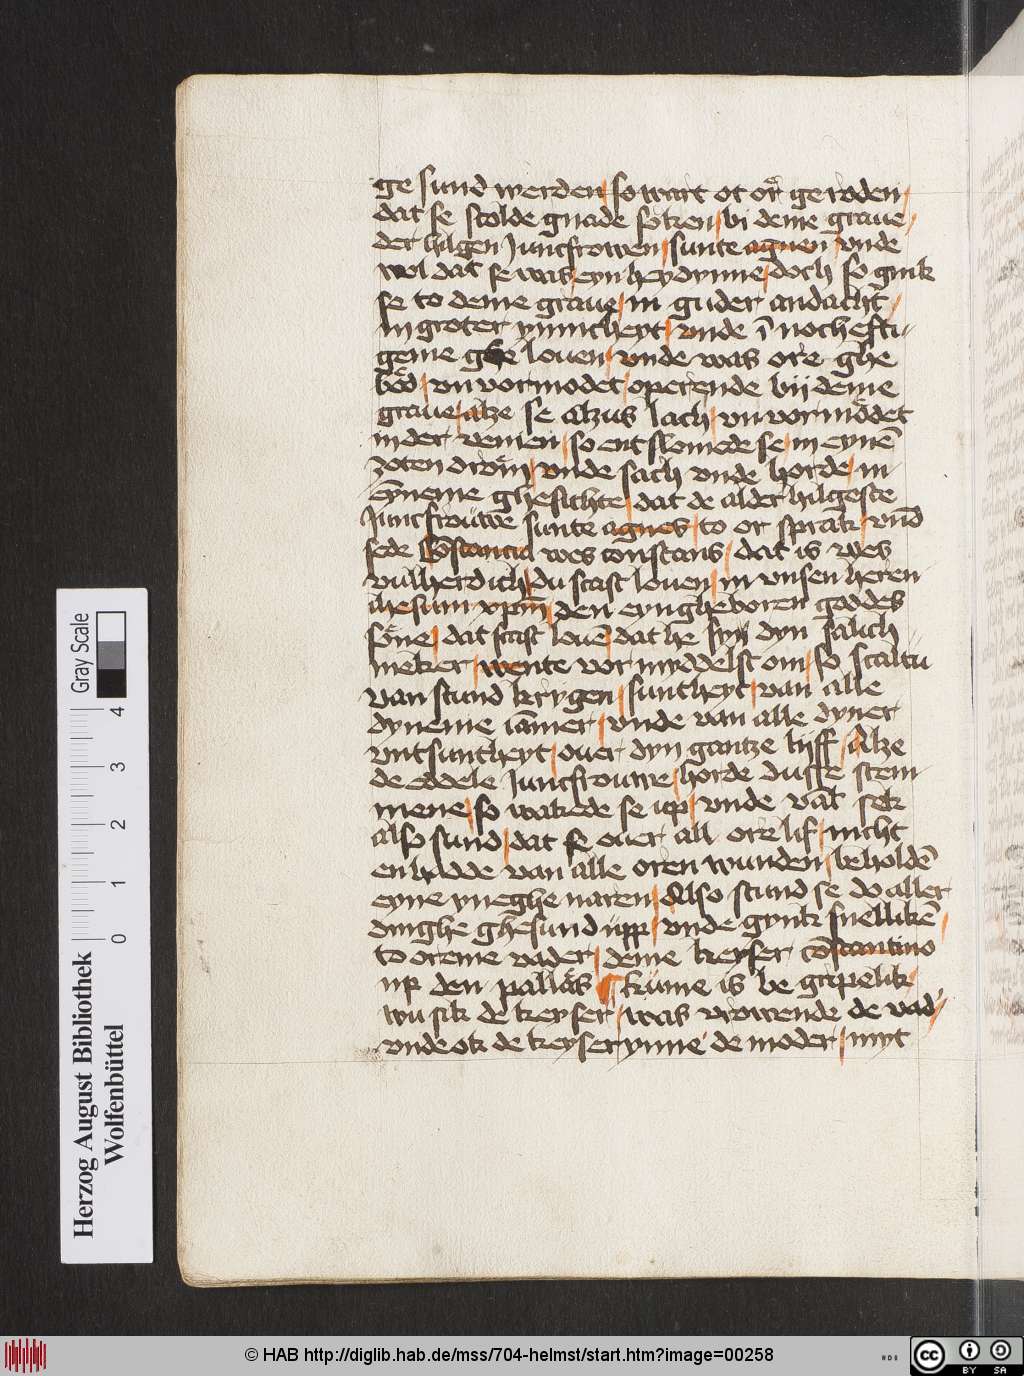 ge sund werden so wart ot or̃ ge roden
dat se scolde gnade soͤken bi deme graue
der hilgen Juncfrowen sunte agneten vnde
wol dat se was eyn heydynne doch so gink
se to deme graue in guder andacht
in groter ynnicheyt vnde ī noch efti-
geme ghe louen vnde was ore ghe
bēd vn vormodet operende bij deme
graue alze se alzus lach vn vormōdet
in der venien so ent slomede se in eynē
zoten drōm vnde sach vnde horde in
eyneme ghesichte dat de alder hilgeste
Juncfrouwe sunte agnes to or sprak vnd
sede Cōstancia wes constans dat is wes
vulherdich du scast louen in vnsen heren
ihesum xp̄m den eyngheboren goddes
sōne dat scast louē dat he sy dyn salich
meker wente vormyddelst om so scaltu
van stund krygen suntheyt van alle
dyneme iāmer vnde van alle dyner
vntsuntheyt ouer dyn gantze lijff Alze
de eddele Juncfrouwe horde dusse stem
mene so wakede se up vnde vāt sek
also sund dat se ouer all ore lif nicht
en hadde van alle oren wunden beholdē
eyne yneghe naren Also stund se do aller
dinghe ghesund upp vnde gynk snellikē
to oreme vader deme keyser cōstantino
up den pallās kume is be gripelik
wu sik de keyser was vrowende de vad'
vnde ok de keyserynne de moder myt
Gray Scale
4
3
2
1
0
Herzog August Bibliothek
Wolfenbüttel
© HAB http://diglib.hab.de/mss/704-helmst/start.htm?image=00258
cc
BY SA